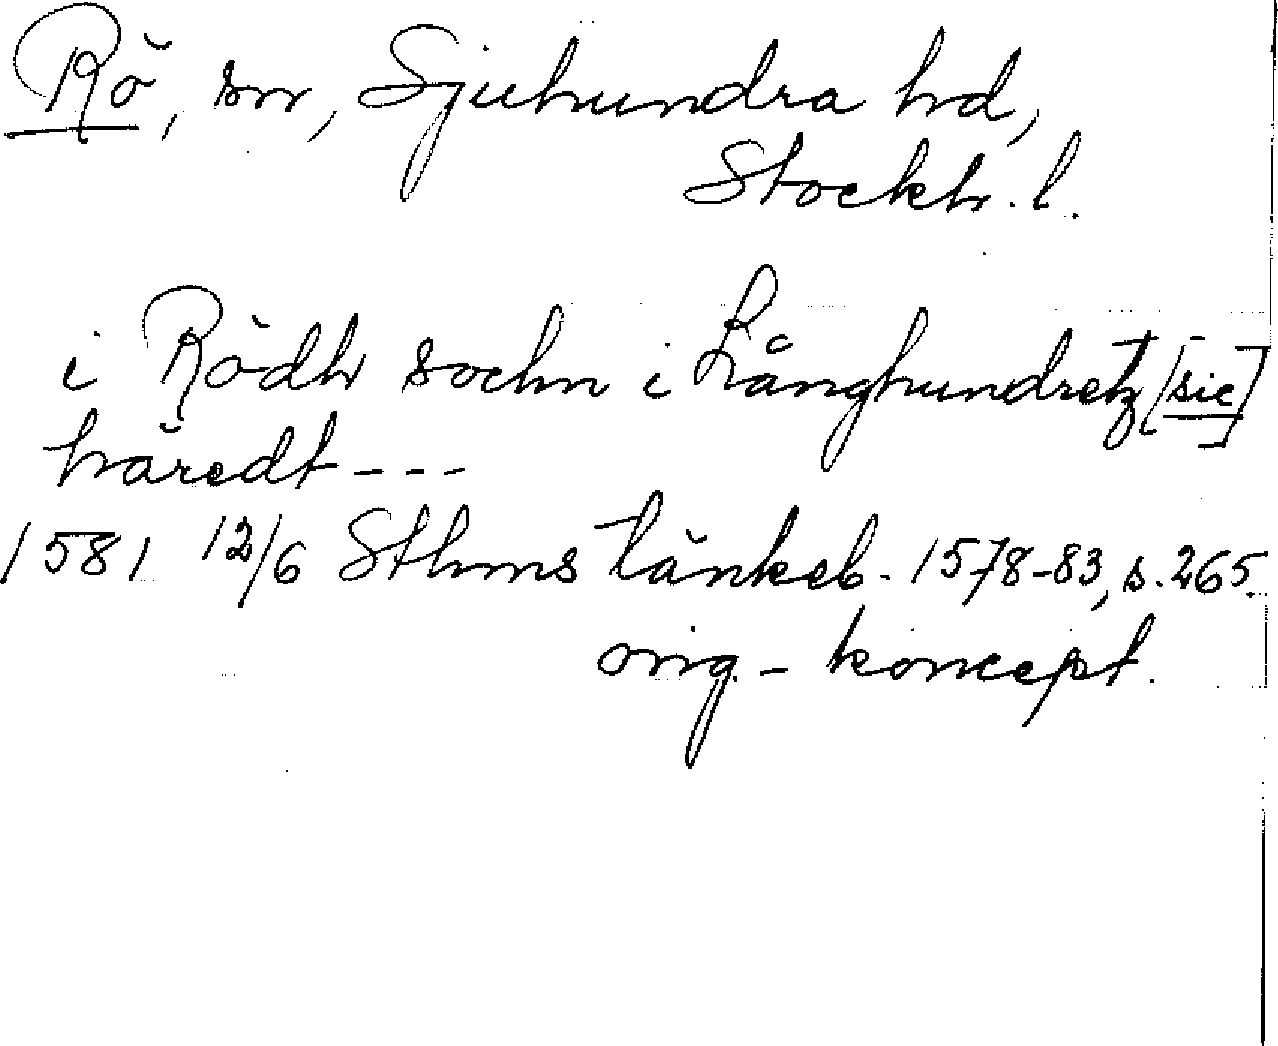 Rö, sn, Sjuhundra hd,
Stockh. l.
i Rödh sochn i Långhundretz [sic]
häredt - - -
1581 12/6 Sthms tänkeb. 1578-83, s. 265.
orig-koncept.